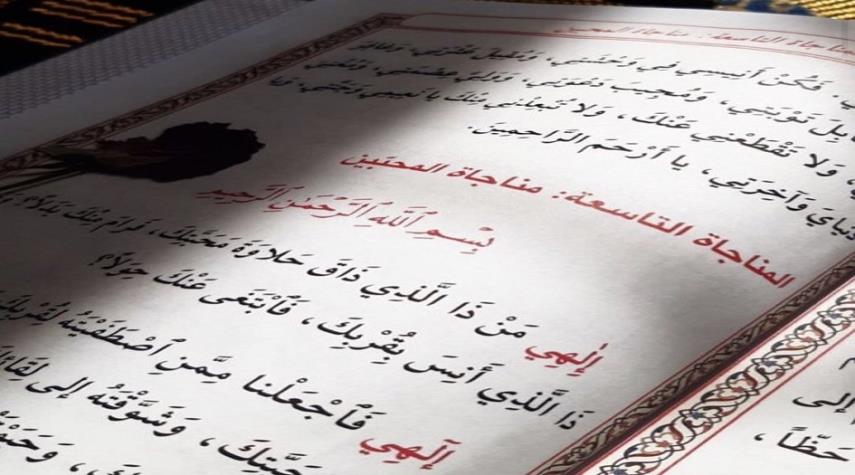 مناجاة التاسعة: مناجاة المحبين
فَكُنْ أَنِيسِي فِي وَحْشَتِي، وَمُقِيلَ عَثْرَتِي، وَغَافِرَ
تَوْبَتِي، وَمُجِيبَ دَعْوَتِي، وَوَلِيَّ عِصْمَتِي، وَمُغْنِيَ
وَلَا تَقْطَعْنِي عَنْكَ، وَلَا تُبْعِدْنِي مِنْكَ يَا نَعِيمِي وَجَنَّتِي، وَيَا
دُنْيَايَ وَآخِرَتِي، يَا أَرْحَمَ الرَّاحِمِينَ.
المناجاة التاسعة: مناجاة المحبين
بِسْمِ ٱللَّهِ ٱلرَّحْمَنِ ٱلرَّحِيمِ
إِلَهِي مَنْ ذَا الَّذِي ذَاقَ حَلَاوَةَ مَحَبَّتِكَ، فَرَامَ مِنْكَ بَدَلًا؟
ذَا الَّذِي أَنِسَ بِقُرْبِكَ، فَٱبْتَغَى عَنْكَ حِوَلًا؟
آلهِي فَٱجْعَلْنا مِمَّنِ ٱصْطَفَيْتَهُ لِقُرْبِكَ
حَبَّتِكَ، وَشَوَّقْتَهُ إلى لِقَائِكَ
إلى
حَظّاً،